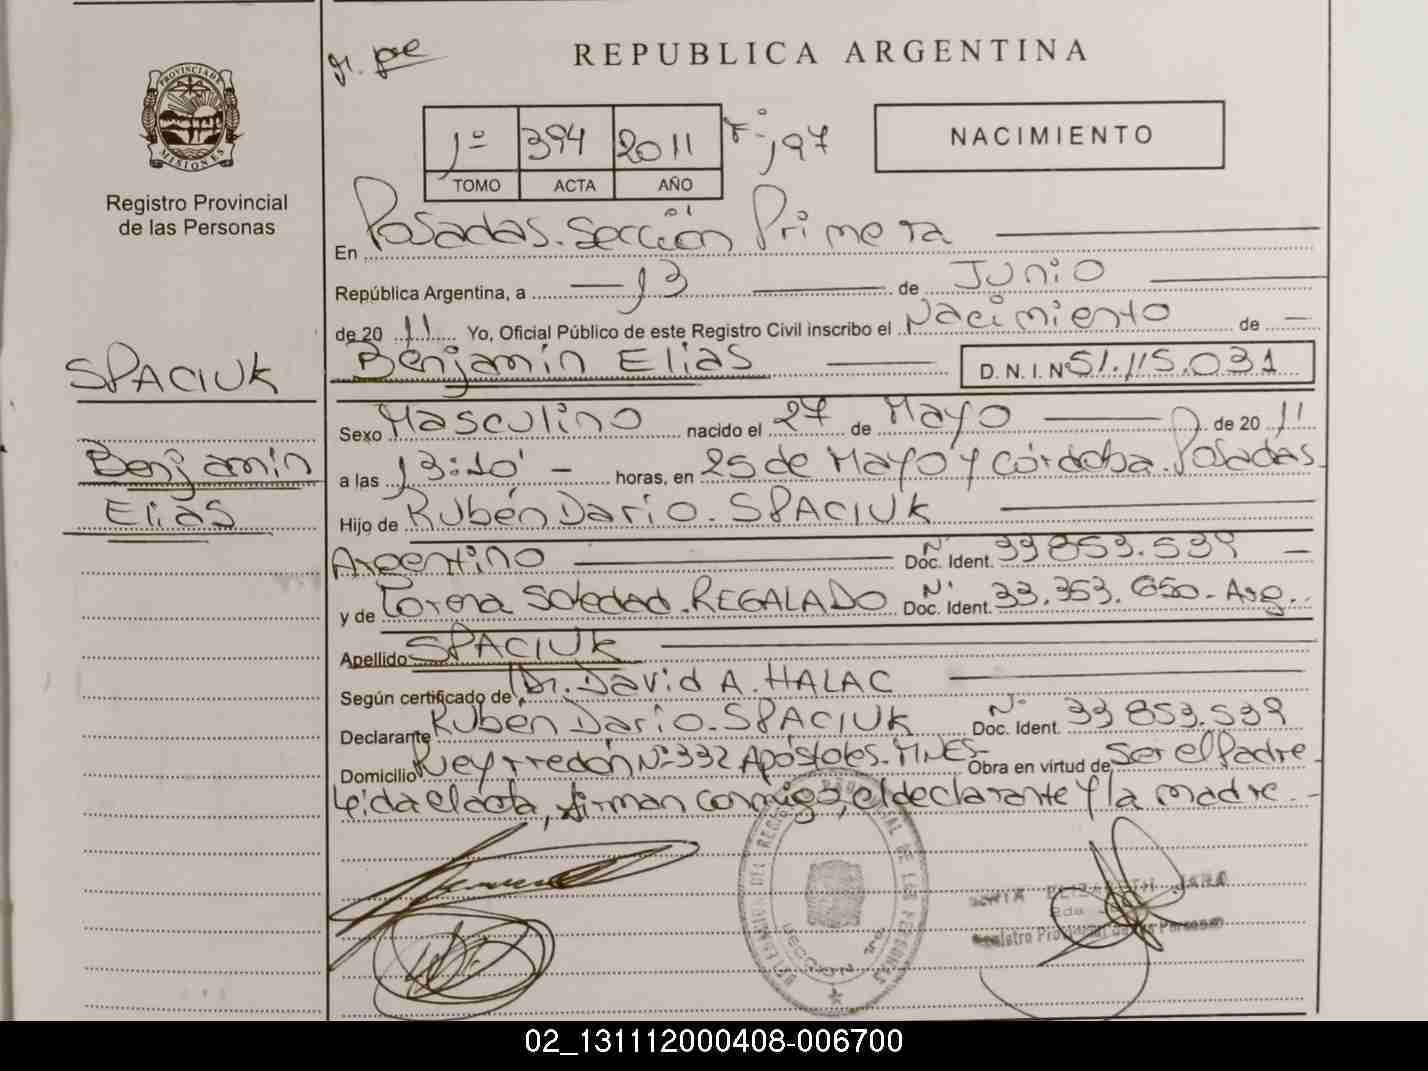 REPUBLICA ARGENTINA
PROVINCIA DE MISIONES
Registro Provincial
de las Personas
1º 394 2011 Fº 197
TOMO ACTA AÑO
NACIMIENTO
En Posadas. Sección Primera
República Argentina, a 13 de Junio
de 2011 Yo, Oficial Público de este Registro Civil inscribo el Nacimiento de
Benjamín Elias D. N. I. Nº 51.115.031
SPACIUK
Benjamín
Elias
Sexo Masculino nacido el 27 de Mayo de 2011
a las 13:10' horas, en 25 de Mayo y Córdoba. Posadas
Hijo de Rubén Dario. SPACIUK
Argentino Nº Doc. Ident. 33 853.539
y de Lorena Soledad. REGALADO Nº Doc. Ident. 33.353.650 - Arg.
Apellido SPACIUK
Según certificado de Dr. David A. HALAC
Declarante Rubén Dario. SPACIUK Nº Doc. Ident. 33 853.539
Domicilio Pueyrredón Nº 332 Apóstoles. MNES- Obra en virtud de ser el Padre
Leida el acta, firman conmigo, el declarante y la madre.
ELIZABETH JARA
Registro Provincial de las Personas
SECCION 1ra
02_131112000408-006700